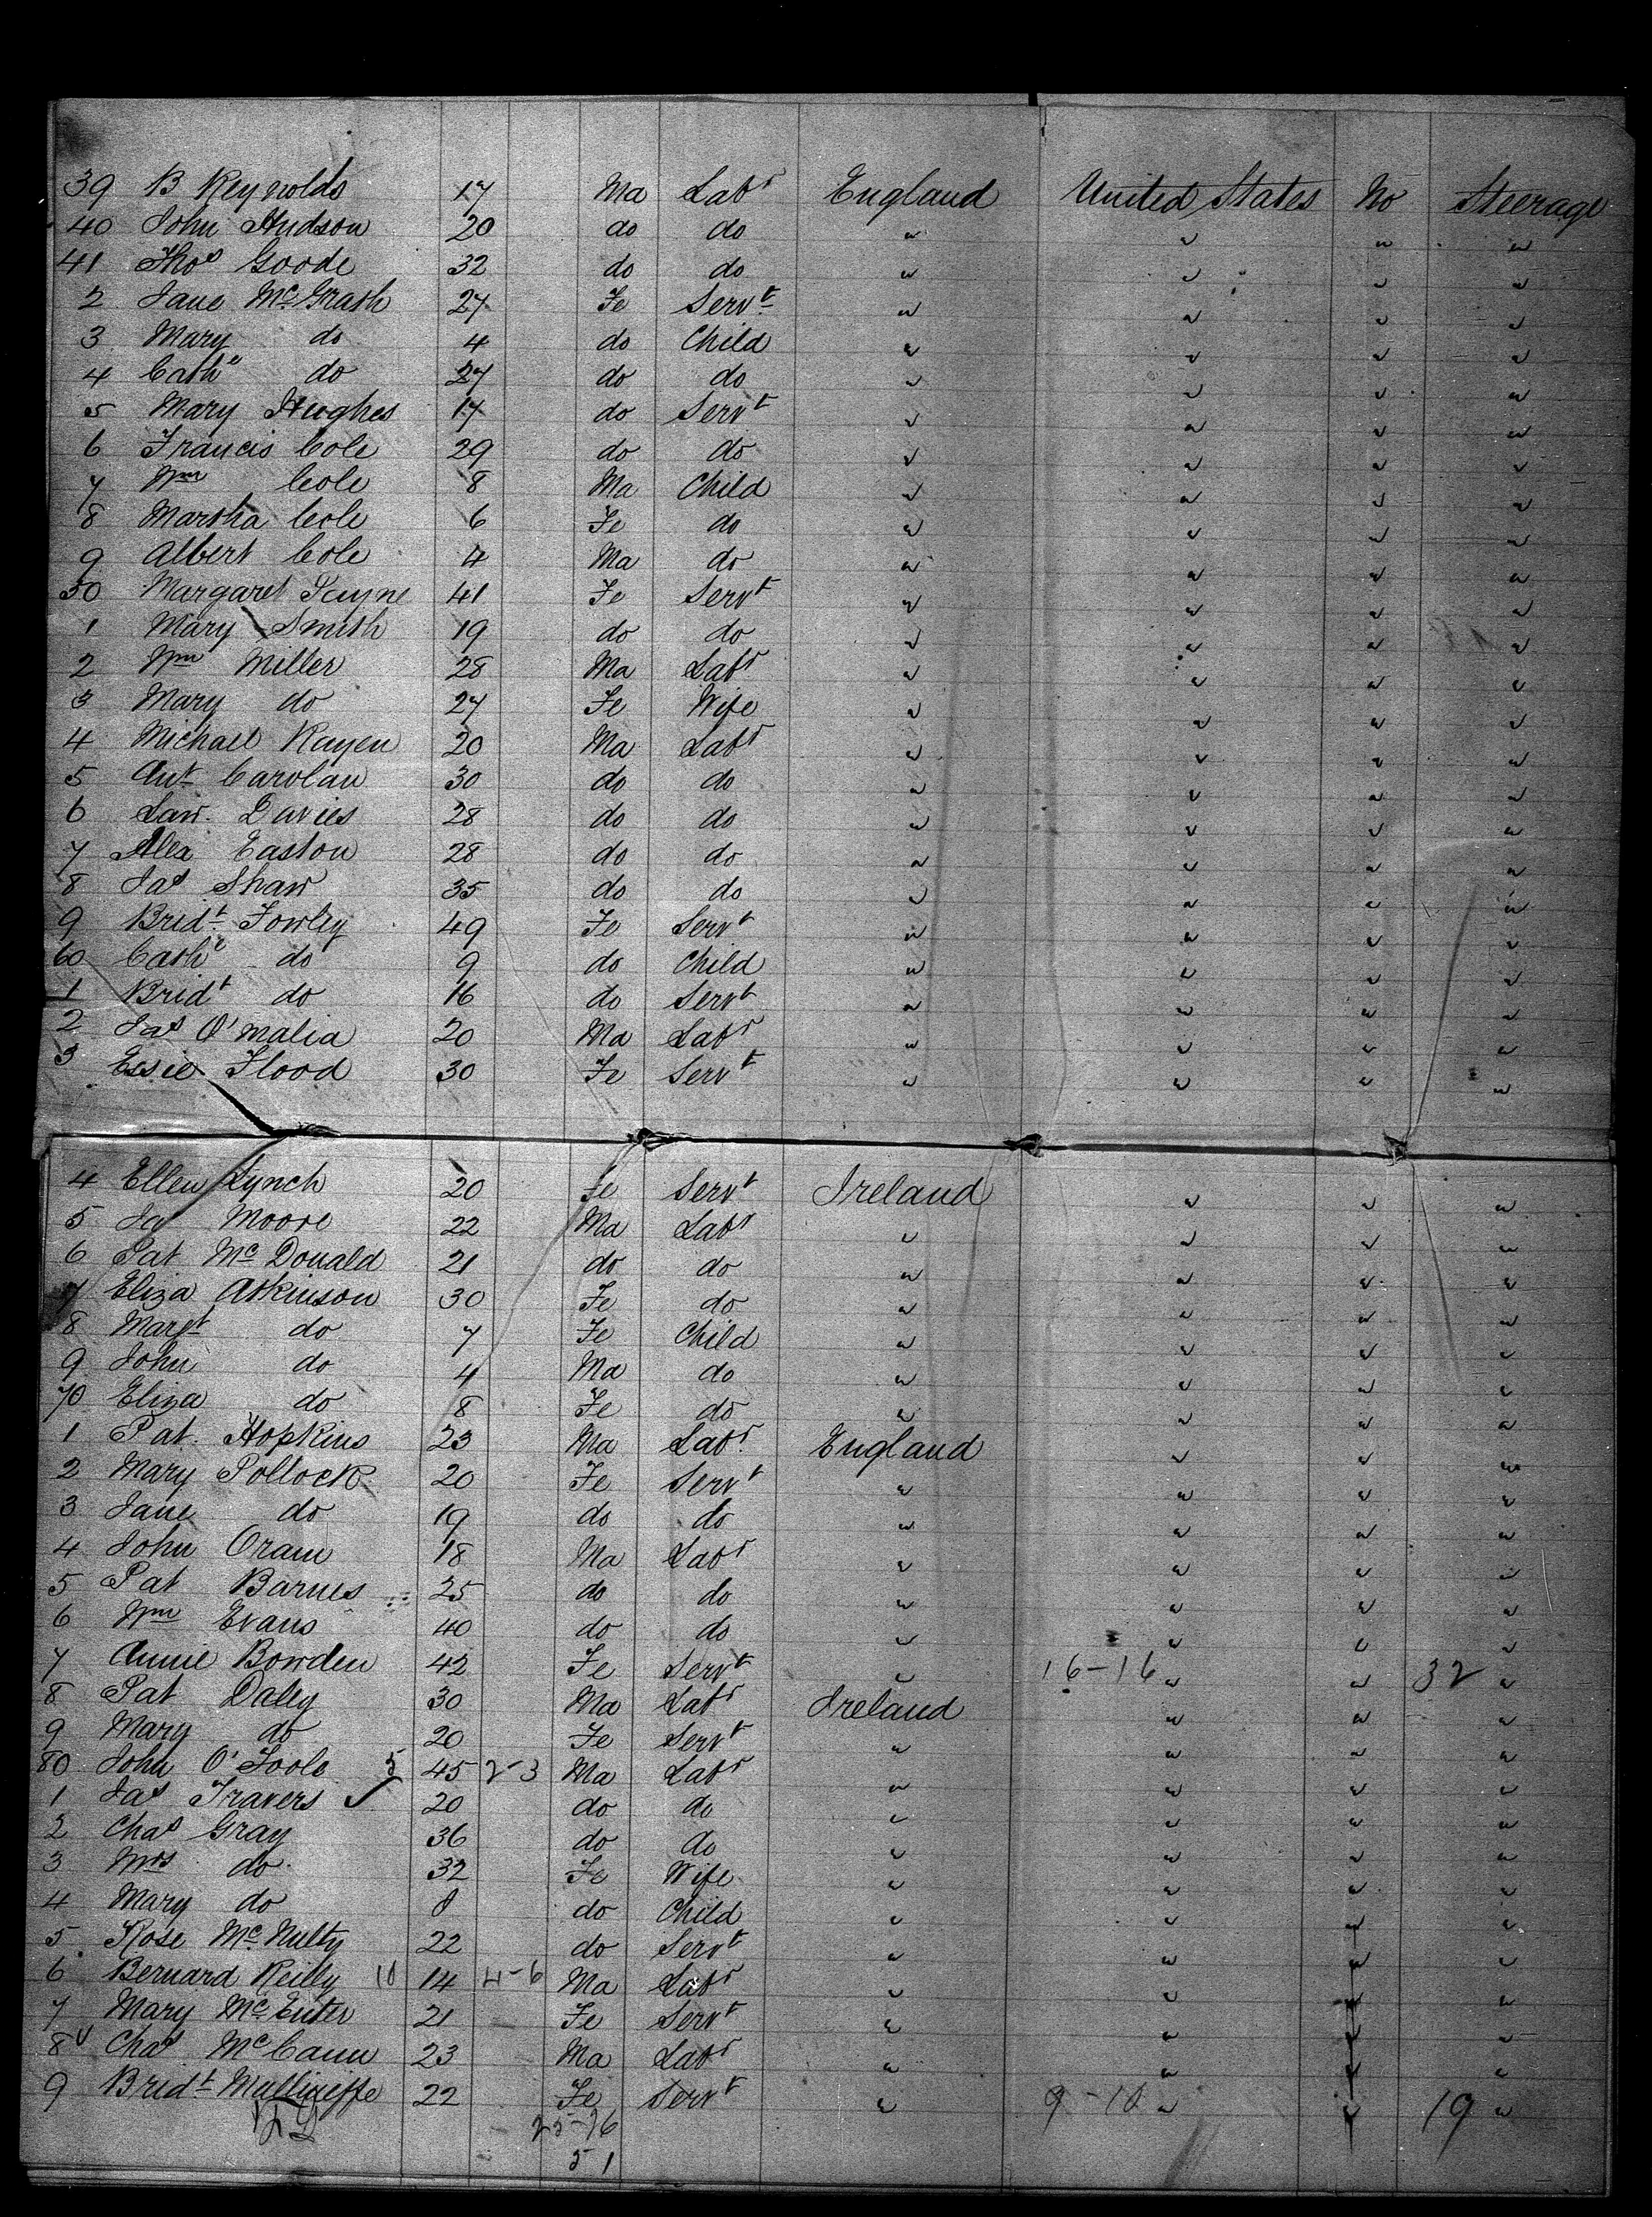 39 B Reynolds 17 Ma Labr England United States No Steerage
40 John Hudson 20 do do " " " "
41 Thos Goode 32 do do " " " "
2 Jane McGrath 27 Fe Servt " " " "
3 Mary do 4 do Child " " " "
4 Cathe do 27 do do " " " "
5 Mary Hughes 17 do Servt " " " "
6 Francis Cole 29 do do " " " "
7 Wm Cole 8 Ma Child " " " "
8 Martha Cole 6 Fe do " " " "
9 Albert Cole 4 Ma do " " " "
50 Margaret Payne 41 Fe Servt " " " "
1 Mary Smith 19 do do " " " "
2 Wm Miller 28 Ma Labr " " " "
3 Mary do 27 Fe Wife " " " "
4 Michael Kayen 20 Ma Labr " " " "
5 Ant Carolan 30 do do " " " "
6 Law. Davies 28 do do " " " "
7 Alex Easton 28 do do " " " "
8 Jas Shaw 35 do do " " " "
9 Bridt Fowley 49 Fe Servt " " " "
60 Cathe do 9 do Child " " " "
1 Bridt do 16 do Servt " " " "
2 Jas O'Malia 20 Ma Labr " " " "
3 Essie Flood 30 Fe Servt " " " "
4 Ellen Lynch 20 Fe Servt Ireland " " "
5 Ja Moore 22 Ma Labr " " " "
6 Pat McDonald 21 do do " " " "
7 Eliza Atkinson 30 Fe do " " " "
8 Margt do 7 Fe Child " " " "
9 John do 4 Ma do " " " "
70 Eliza do 8 Fe do " " " "
1 Pat. Hopkins 23 Ma Labr England " " "
2 Mary Pollock 20 Fe Servt " " " "
3 Jane do 19 do do " " " "
4 John Oram 18 Ma Labr " " " "
5 Pat Barnes 25 do do " " " "
6 Wm Evans 40 do do " " " "
7 Annie Bowden 42 Fe Servt " 16-16 " " 32 "
8 Pat Daley 30 Ma Labr Ireland " " "
9 Mary do 20 Fe Servt " " " "
80 John O'Toole 5 45 2-3 Ma Labr " " " "
1 Jas Travers 20 do do " " " "
2 Chas Gray 36 do do " " " "
3 Mrs do 32 Fe Wife " " " "
4 Mary do 8 do Child " " " "
5 Rose McNulty 22 do Servt " " " "
6 Bernard Reilly 10 14 4-6 Ma Labr " " " "
7 Mary McEnter 21 Fe Servt " " " "
8 Chas McCann 23 Ma Labr " " " "
9 Bridt 22 Fe Servt " 9-10 " " 19 "
25-26
51